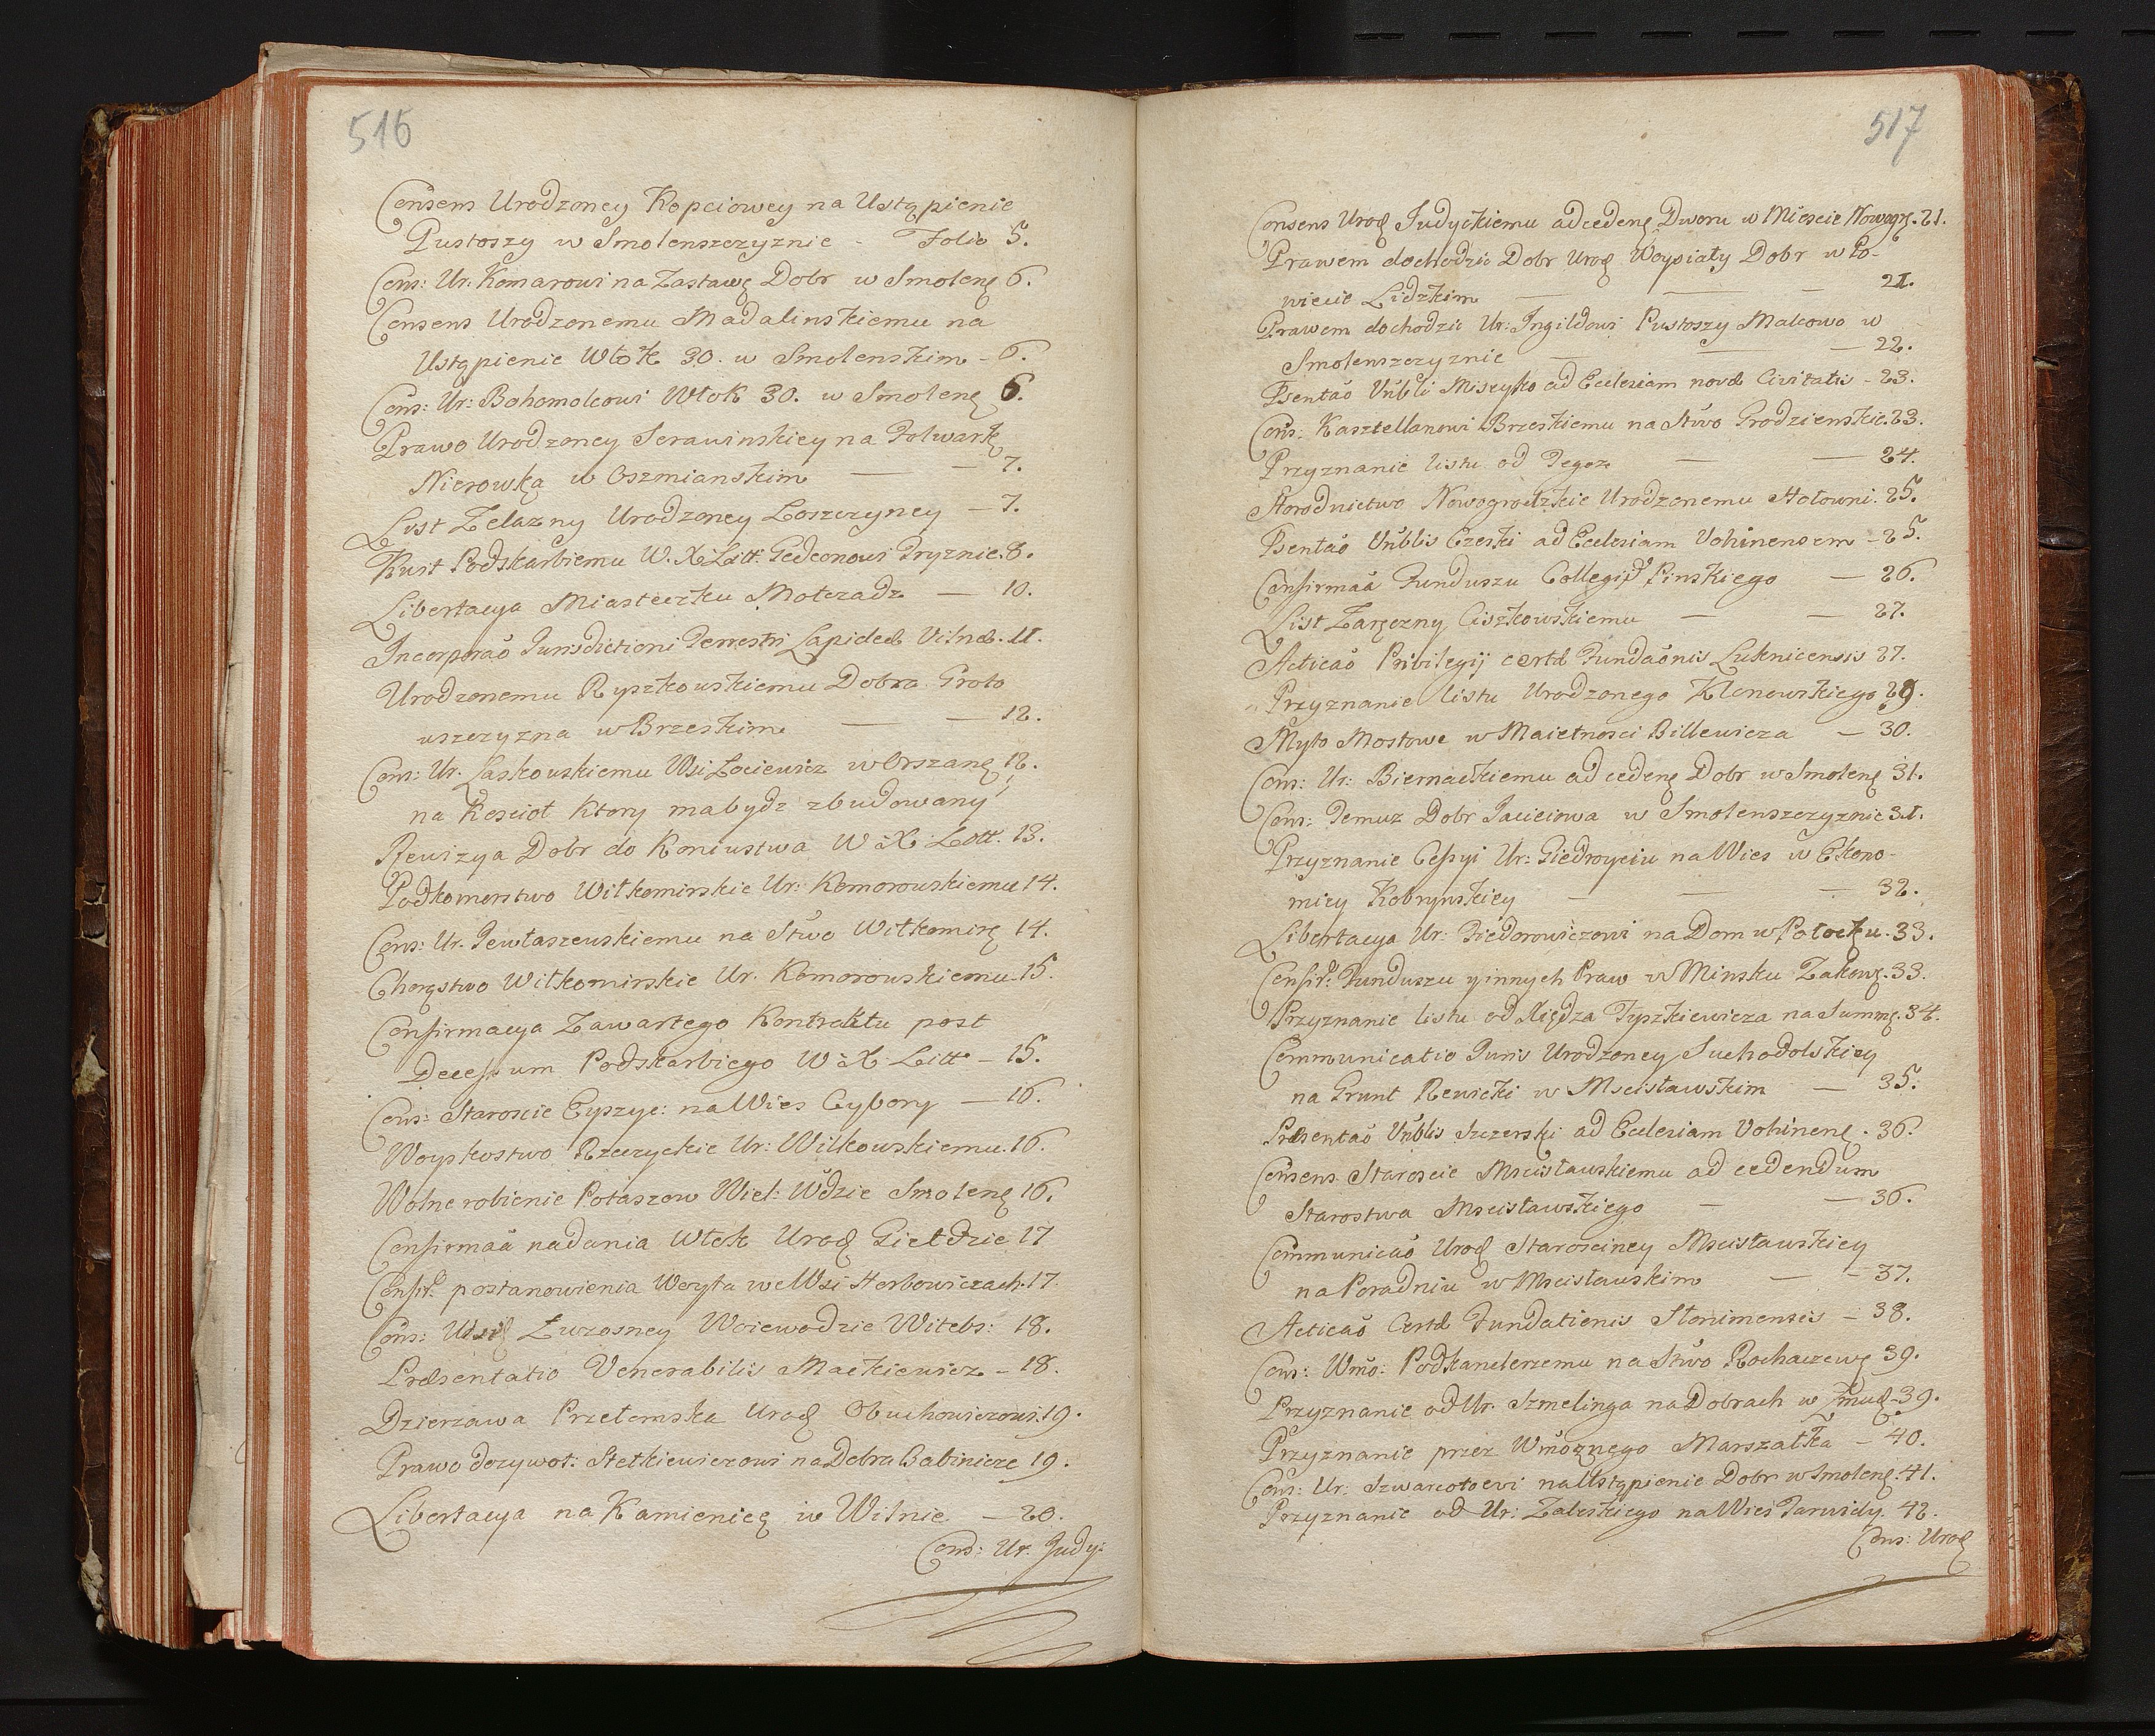 516
Consens Urodzoney Kopciowey na Ustąpienie
Pustoszy w Smolenszczyznie - Folio 5.
Cons: Ur: Komarowi na Zastawę Dobr w Smolenę 6.
Consens Urodzonemu Madalinskiemu na
Ustąpienie Włok 30. w Smolenskim - 6.
Cons: Ur: Bohomolcowi Włok 30. w Smolenę 6.
Prawo Urodzoney Serawinskiey na Folwark
Nierowką w Oszmianskim — - 7.
List Zelazny Urodzoney Loszczyney - 7.
Kwit Podskarbiemu W. X Litt: Gedeonowi Tryznie. 8.
Libertacya Miasteczku Motczadz — 10.
Incorporaõ Jurisdictioni Terrestri Lapideæ Vilnæ. 11.
Urodzonemu Ryszkowskiemu Dobra Proto
uszczyzna w Brzeskim — - 12.
Cons: Ur. Laskowskiemu Wsi Łociewicz w Orszanę 12.
na Kosciot Ktory ma bydz zbudowany
Rewizya Dobr do Koniustwa W X Litt. 13.
Podkomorstwo Wiłkomirskie Ur: Komorowskiemu 14.
Cons: Ur. Jewłaszewskiemu na Stwo Wiłkomirę 14.
Chorąstwo Wiłkomirskie Ur. Komorowskiemu. 15.
Confirmacya Zawartego Kontraktu post
Decessum Podskarbiego W X Litt - 15.
Cons: Staroscie Cyszyc: na Wies Cybory — 16.
Woyskostwo Rzeczyckie Ur: Wilkowskiemu. 16.
Wolne robienie Potaszow Wiel: Wdzie Smolenę 16.
Confirmaã nadania Włok Urod Giełdzie 17
Confir: postanowienia Woyta we Wsi Horbowiczach. 17.
Cons: Wsi Łuzosney Woiewodzie Witebs: 18.
Præsentatio Venerabilis Mackiewicz - 18.
Dzierzawa Przełomska Urod Obuchowiczowi. 19.
Prawo dozywot: Stetkiewiczowi na Dobra Babinicze 19.
Libertacya na Kamienicę w Wilnie - 20.
Cons: Ur. Judy:
517
Consens Urod Judyckiemu ad cedenę Dworu w Miescie Nowogr. 21.
Prawem dochodzic Dobr Urod Woysiaty Dobr w Po-
wiecie Lidzkim — — - 21.
Prawem dochodzic Ur: Ingildowi Pustoszy Malcowo w
Smolenszczyznie — — - 22.
Psentaõ Vnbli Miszyko ad Ecclesiam novæ Civitatis - 23.
Cons: Kasztellanowi Brzeskiemu na Stwo Grodzienskie. 23.
Przyznanie listu od Tegoz — — 24.
Horodnictwo Nowogrodzkie Urodzonemu Hołowni. 25.
Psentaõ Vnblis Czeski ad Ecclesiam Vohinensem - 25.
Confirmaã Funduszu Collegij Pinskiego — 26.
List Zaręczny Ciszkowskiemu — — 27.
Acticaõ Privilegij certæ Fundaõnis Luknicensis 27.
Przyznanie listu Urodzonego Klonowskiego 29.
Myto Mostowe w Maietnosci Billewicza — 30.
Cons: Ur: Biernackiemu ad cedenę Dobr w Smolenę 31.
Cons: Temuz Dobr Jacieiowa w Smolenszczyznie 31.
Przyznanie Cessyi Ur: Giedroyciu na Wies w Ekono-
miey Kobrynskiey — — - 32.
Libertacya Ur: Fiedorowiczowi na Dom w Połocku. 33.
Confir: Funduszu y innych Praw w Minsku Zakonę. 33.
Przyznanie listu od Xiędza Tyszkiewicza na Summę. 34.
Communicatio Juris Urodzoney Suchodolskiey
na Grunt Rewicki w Mscisławskim — 35.
Præsentaõ Vnblis Szczerski ad Ecclesiam Vohinenę. 36.
Consens Staroscie Mscisławskiemu ad cedendum
Starostwa Mscisławskiego — — 36.
Communicaõ Urod Starosciney Mscisławskiey
na Poradniu w Mscisławskim — - 37.
Acticaõ Certæ Fundationis Słonimensis - 38.
Cons: Wmo: Podkanclerzemu na Stwo Rohaczewę 39.
Przyznanie od Ur. Szmelinga na Dobrach w Zmud. 39.
Przyznanie przez Wmoznego Marszałka - 40.
Cons: Ur: Szwarcotoewi na Ustąpienie Dobr w Smolenę. 41.
Przyznanie od Ur: Zaleskiego na Wies Jarwidy. 42.
Cons: Urod